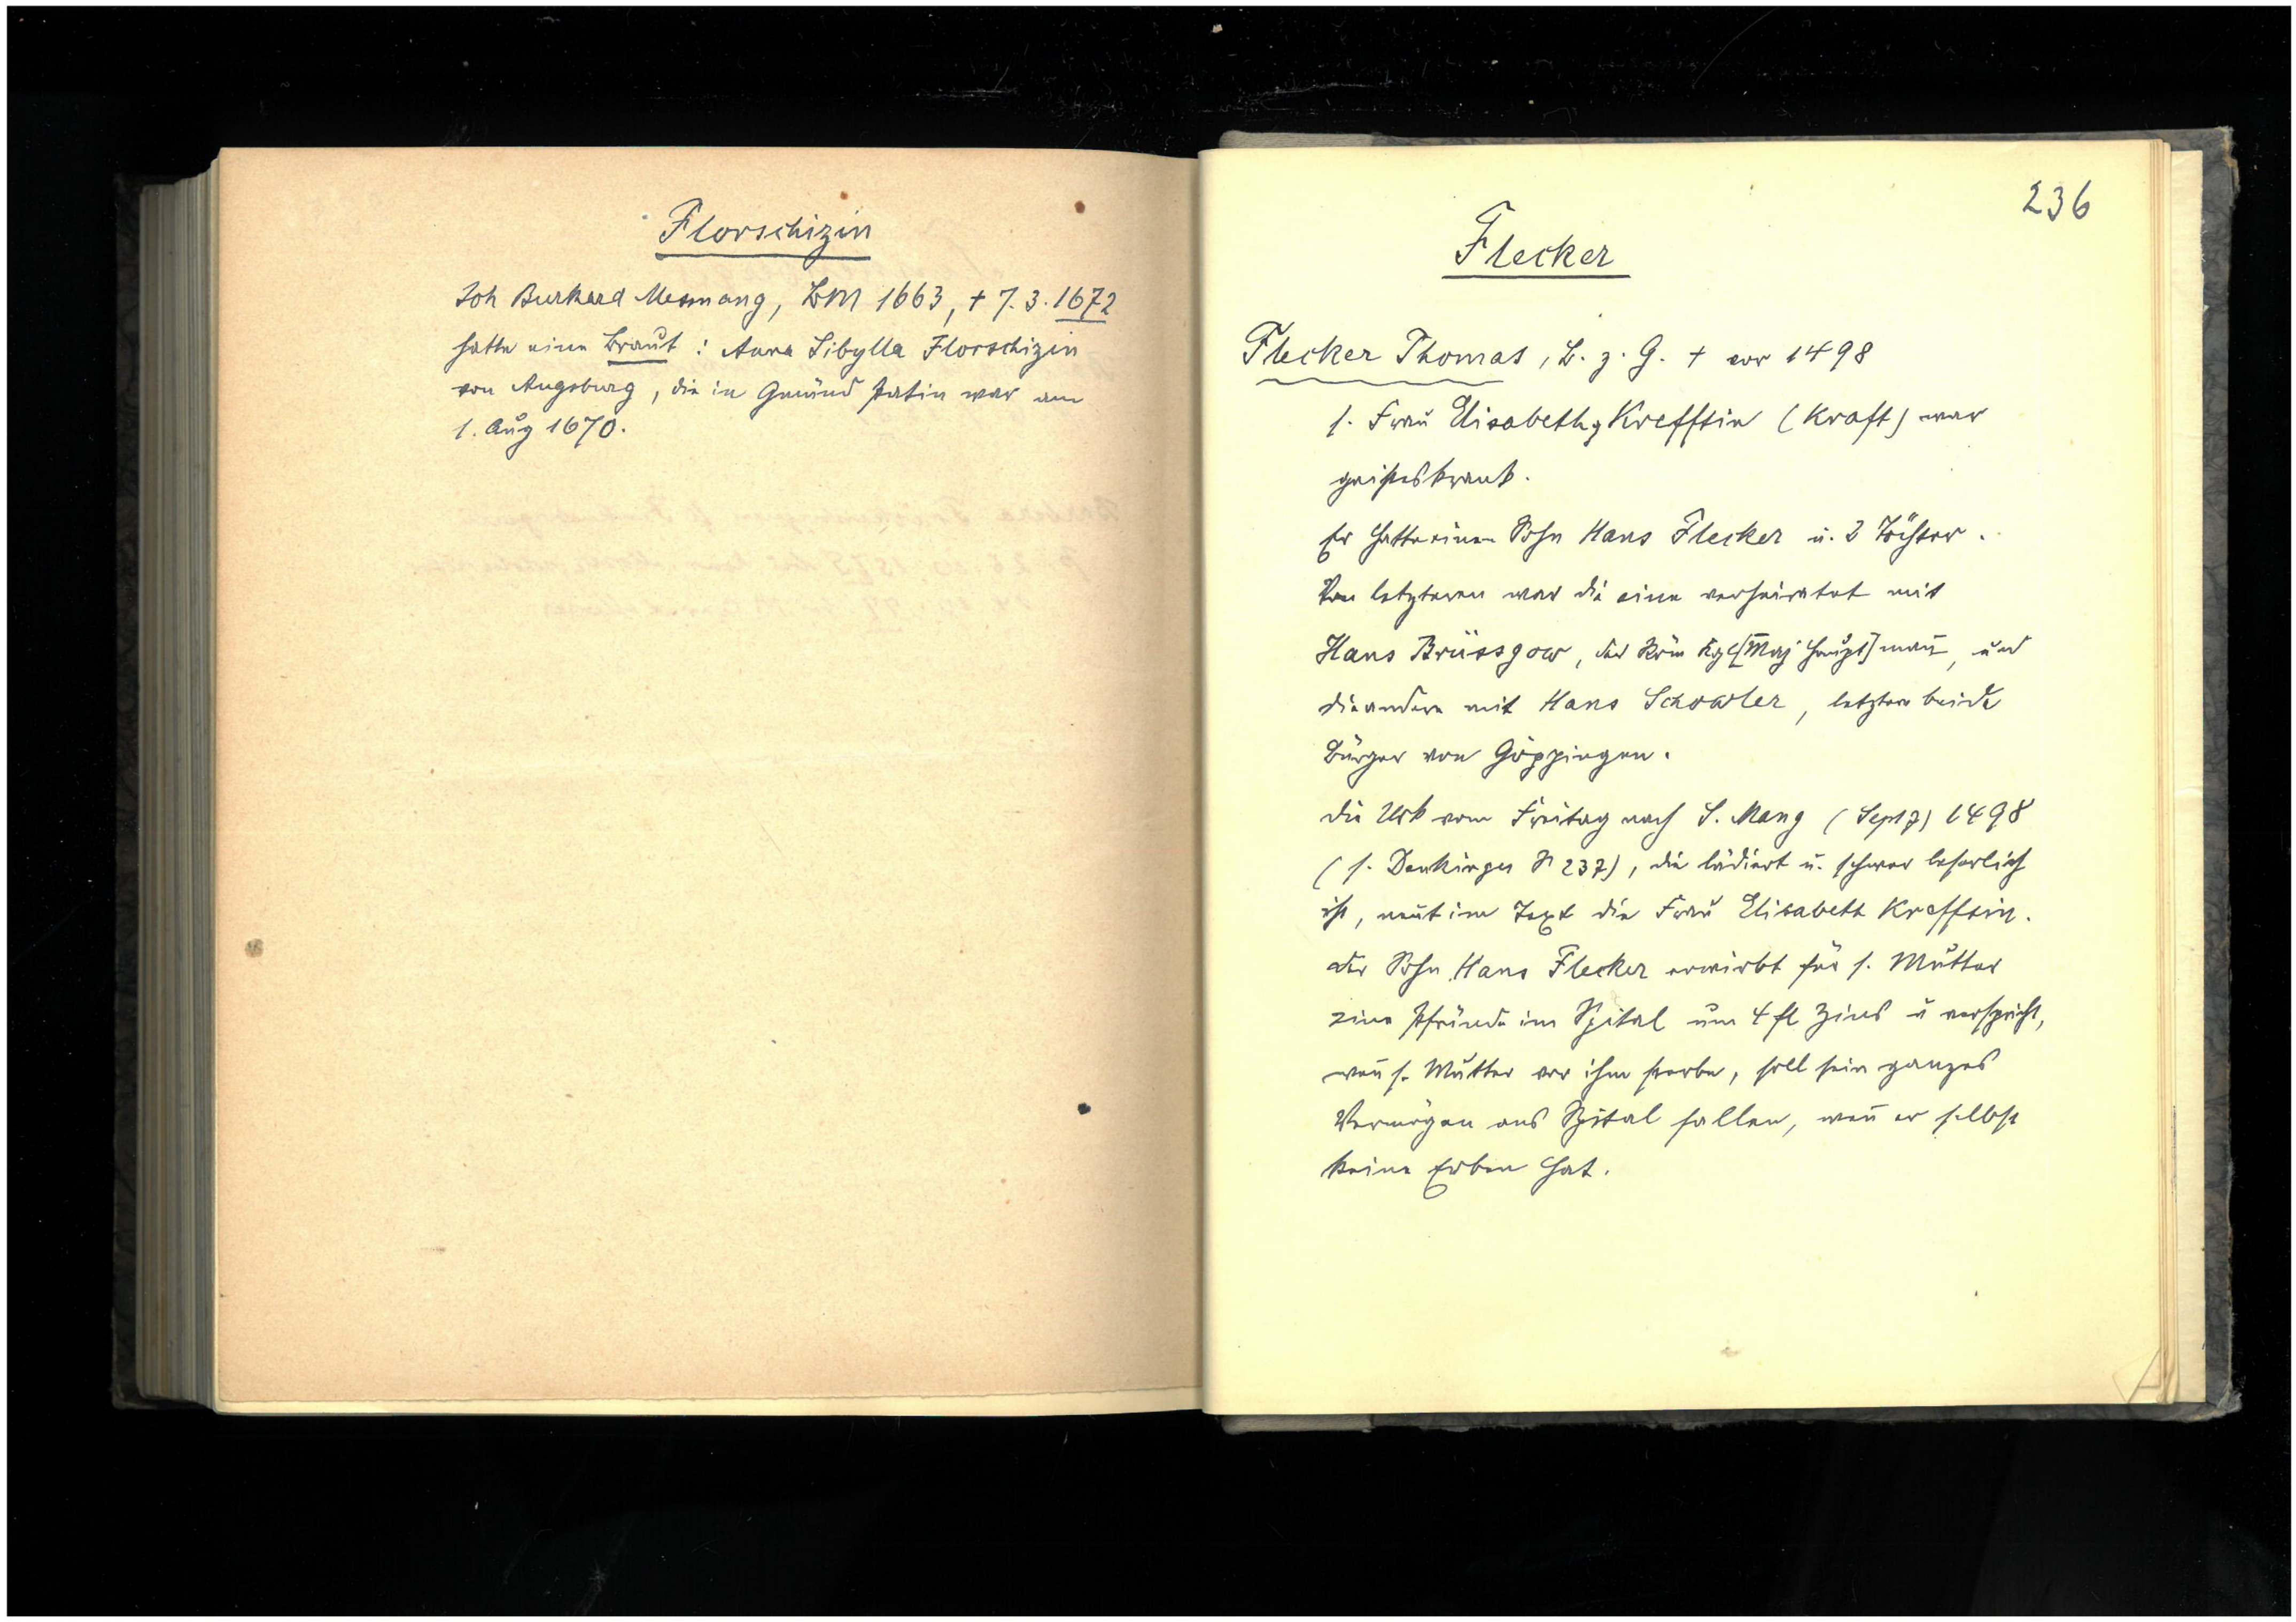 Florschizin
Joh Burkard Mesnang, BM 1663, † 7. 3. 1672
hatte eine Braut : Anna Sibylla Florschizin
von Augsburg, die in Gmünd Patin war am
1. Aug 1670.
236
Flecker
Flecker Thomas, B. z. G. † vor 1498
s. Frau Elisabeth Krefftin (Kraft) war
geisteskrank.
Er hatte einen Sohn Hans Flecker u. 2 Töchter.
Von letzteren war die eine verheiratet mit
Hans Brüssgow, der Röm Kgl [Maj Haupt]man̄, und
die andere mit Hans Schowler, letztere beide
Bürger von Göppingen.
Die Urk vom Freitag nach S. Mang (Sept 7) 1498
(s. Denkinger N 237), die lädiert u. schwer leserlich
ist, nen̄t im Text die Frau Elisabeth Krefftin.
Der Sohn Hans Flecker erwirbt für s. Mutter
eine Pfründe im Spital um 4 fl Zins u verspricht,
wen̄ s. Mutter vor ihm sterbe, soll sein ganzes
Vermögen ans Spital fallen, wen̄ er selbst
keine Erben hat.